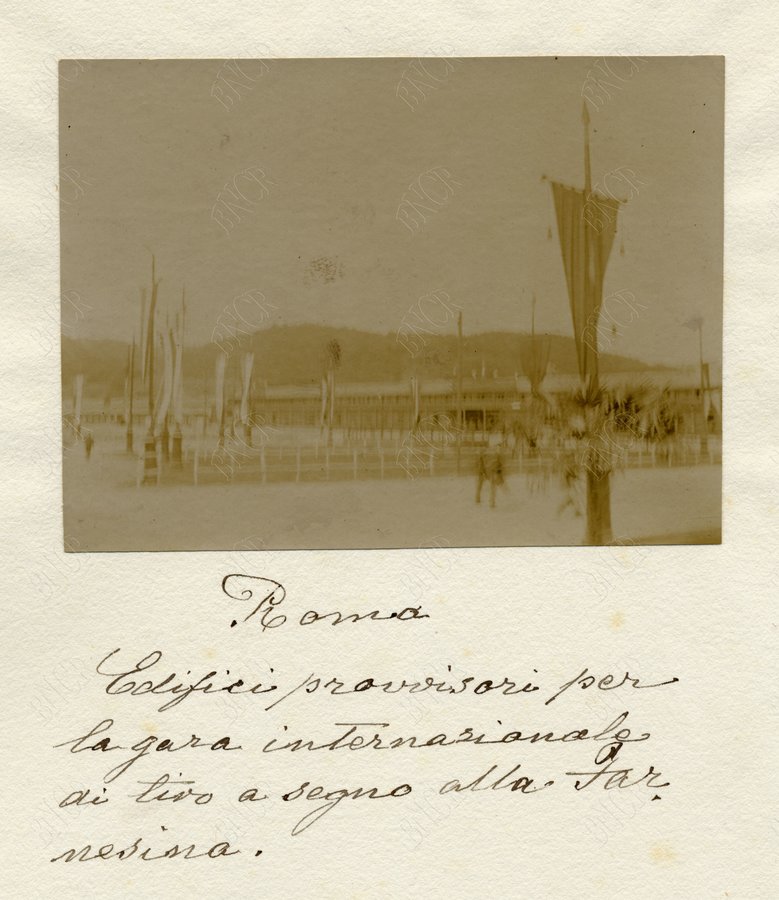 Roma
Edifici provvisori per
la gara internazionale
di tiro a segno alla Far-
nesina.